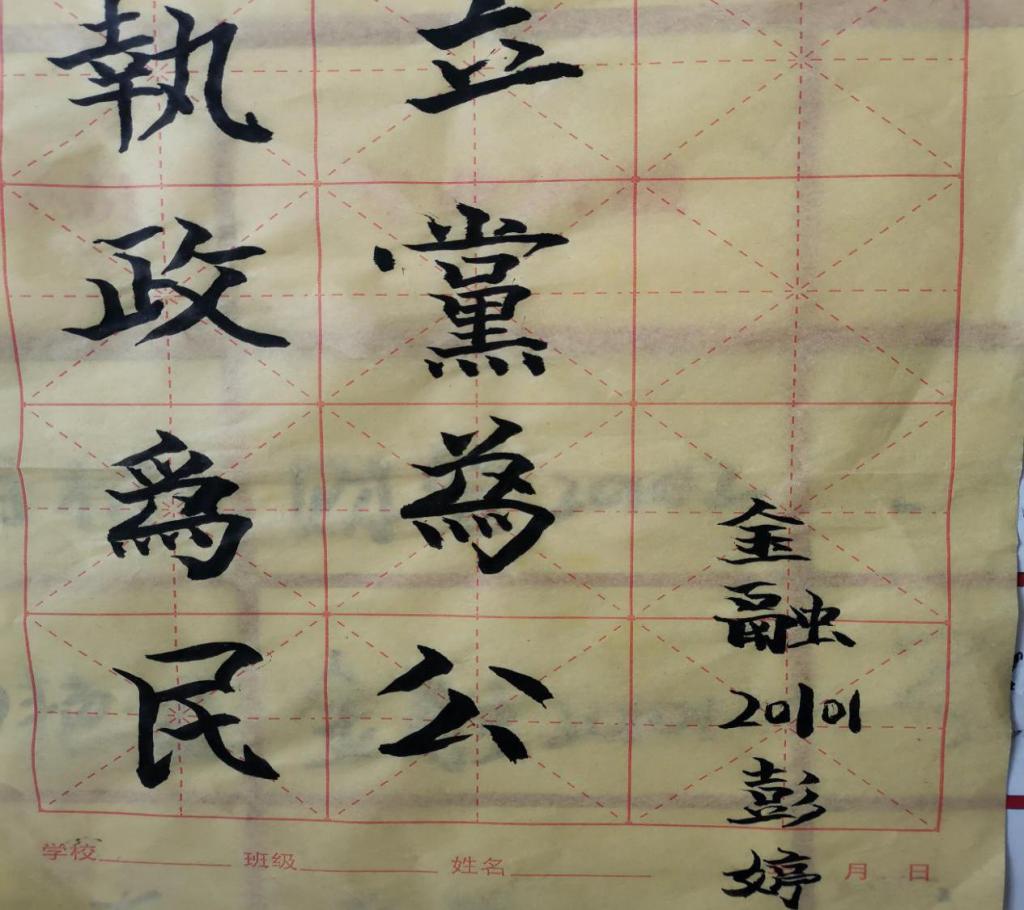 立黨為公
執政爲民
金融20101彭婷
学校 班级 姓名 月 日